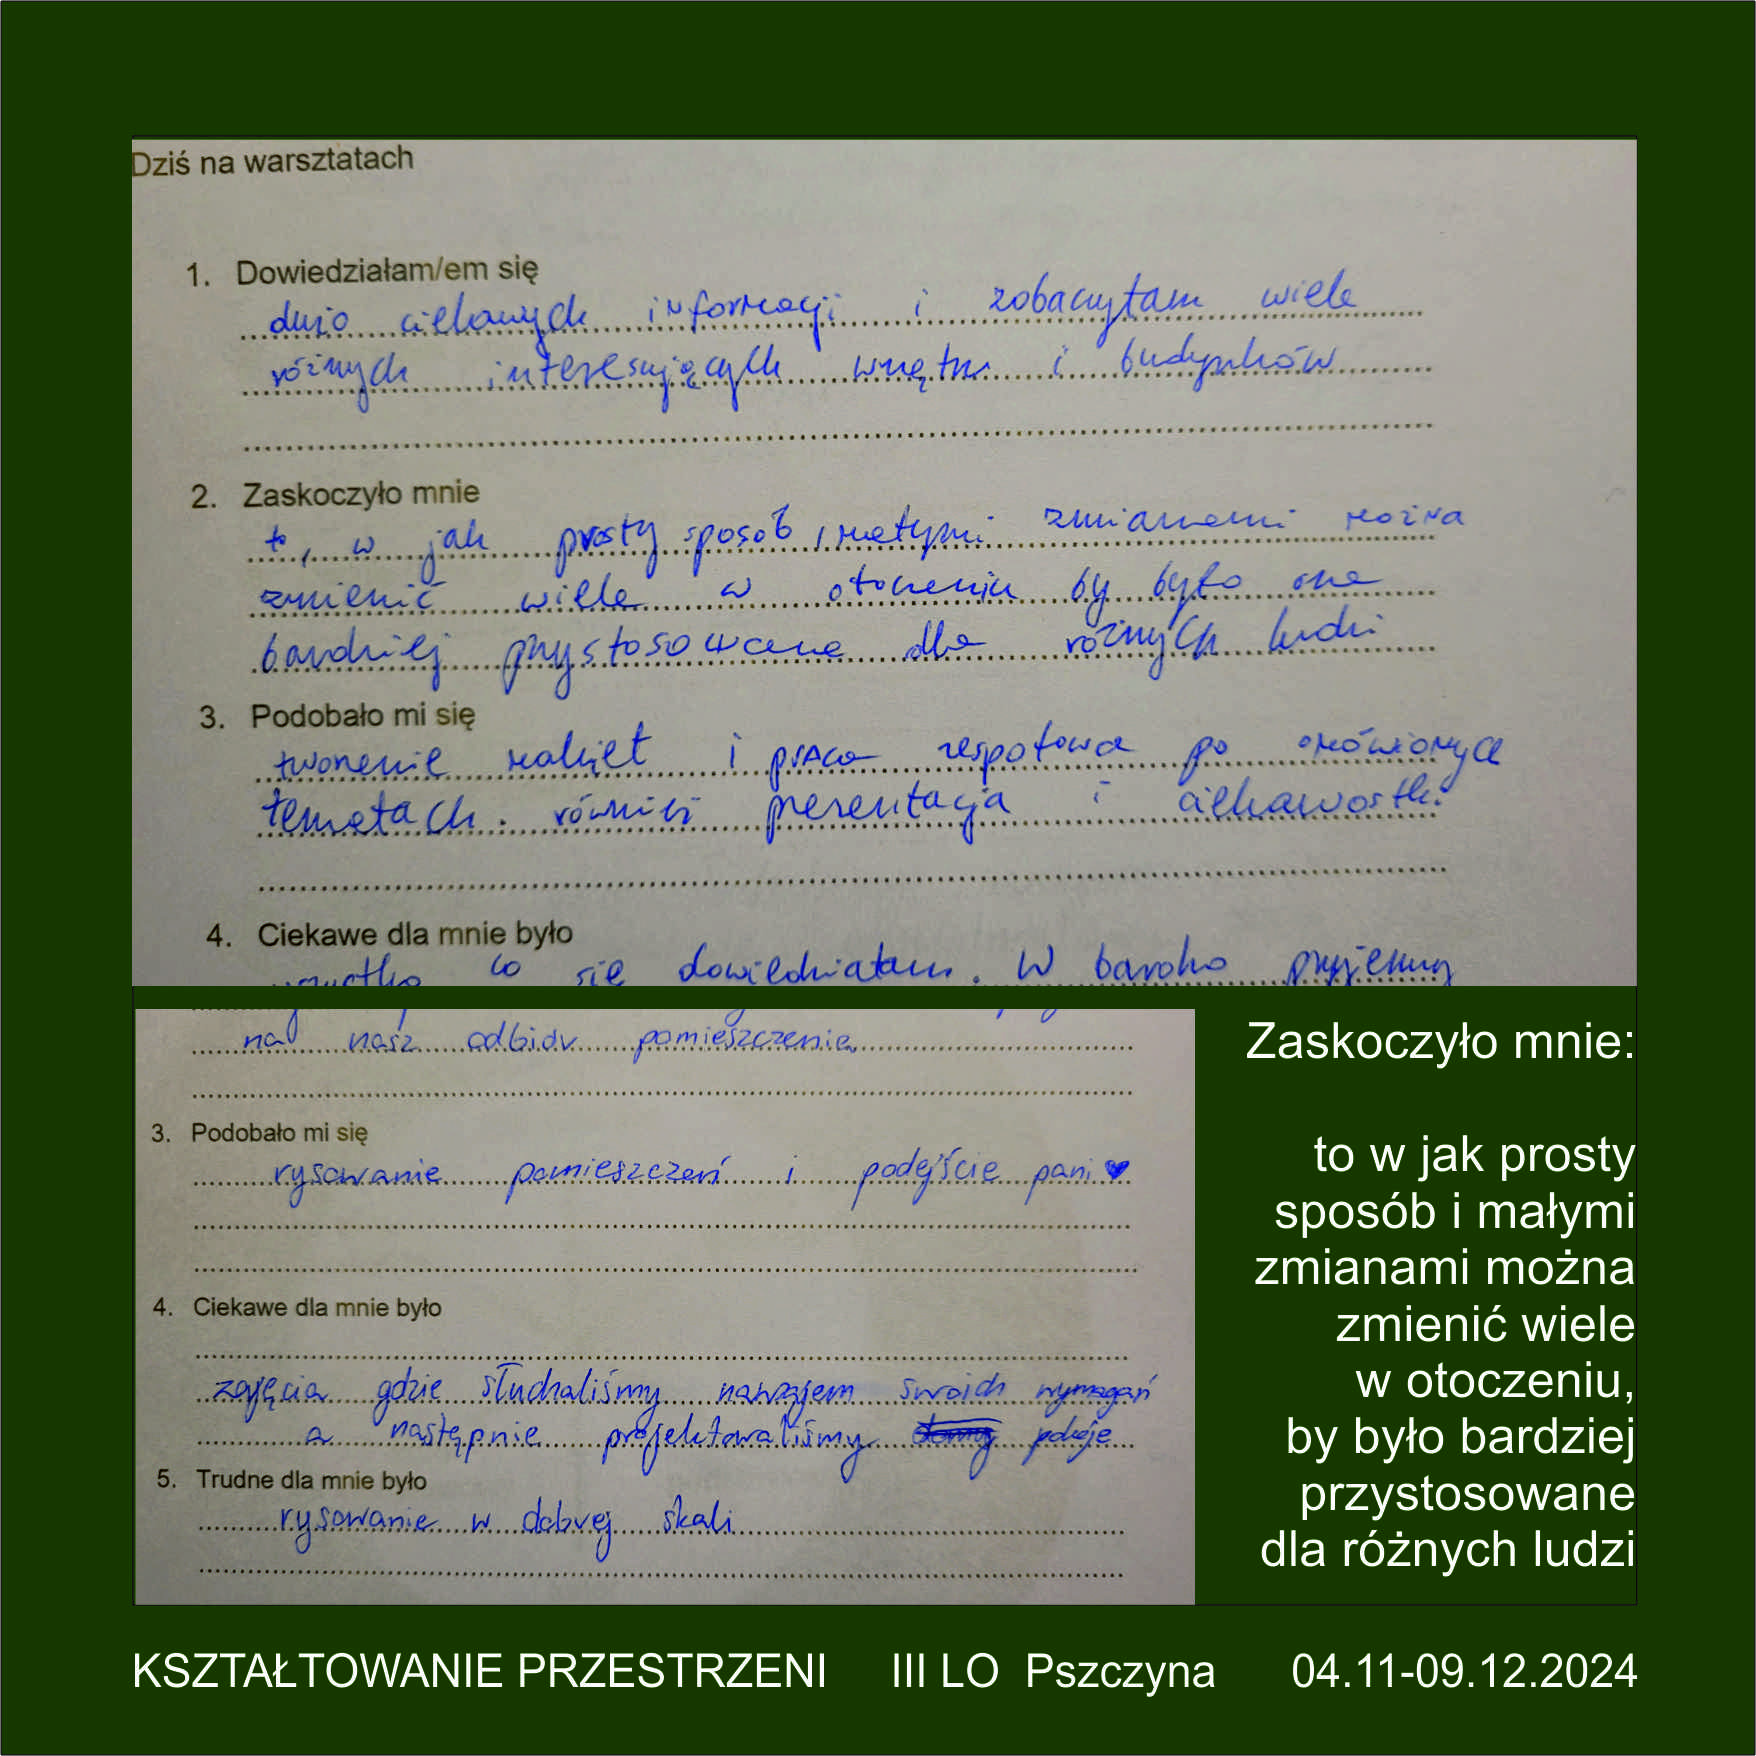 Dziś na warsztatach
1. Dowiedziałam/em się
dużo ciekawych informacji i zobaczyłam wiele
różnych interesujących wnętrz i budynków
2. Zaskoczyło mnie
to, w jak prosty sposób i małymi zmianami można
zmienić wiele w otoczeniu by było one
bardziej przystosowane dla różnych ludzi
3. Podobało mi się
tworzenie makiet i praca zespołowa po omówionych
tematach. również prezentacja i ciekawostki
4. Ciekawe dla mnie było
wszystko co się dowiedziałam. W bardzo przyjemny
na nasz odbiór pomieszczenia
3. Podobało mi się
rysowanie pomieszczeń i podejście pani
4. Ciekawe dla mnie było
zajęcia gdzie słuchaliśmy nawzajem swoich wymagań
a następnie projektowaliśmy pokoje
5. Trudne dla mnie było
rysowanie w dobrej skali
Zaskoczyło mnie:
to w jak prosty
sposób i małymi
zmianami można
zmienić wiele
w otoczeniu,
by było bardziej
przystosowane
dla różnych ludzi
KSZTAŁTOWANIE PRZESTRZENI III LO Pszczyna 04.11-09.12.2024